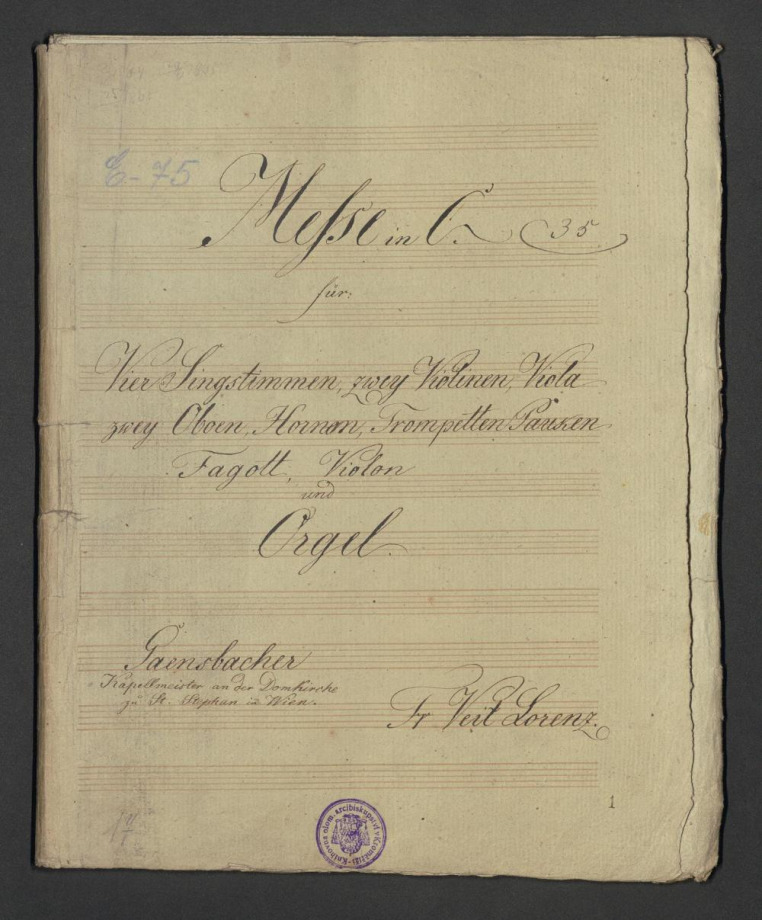 E-75
Messe in C. 35.
für:
Vier Singstimmen, zwey Violinen, Viola
zwey Oboen, Hornon, Trompetten Pauken
Fagott, Violon
und
Orgel.
Gaensbacher
Kapellmeister an der Domkirche
zu St. Stephan in Wien.
Fr Veit Lorenz.
1
Knihovna olom. arcibiskupství v Kroměříži